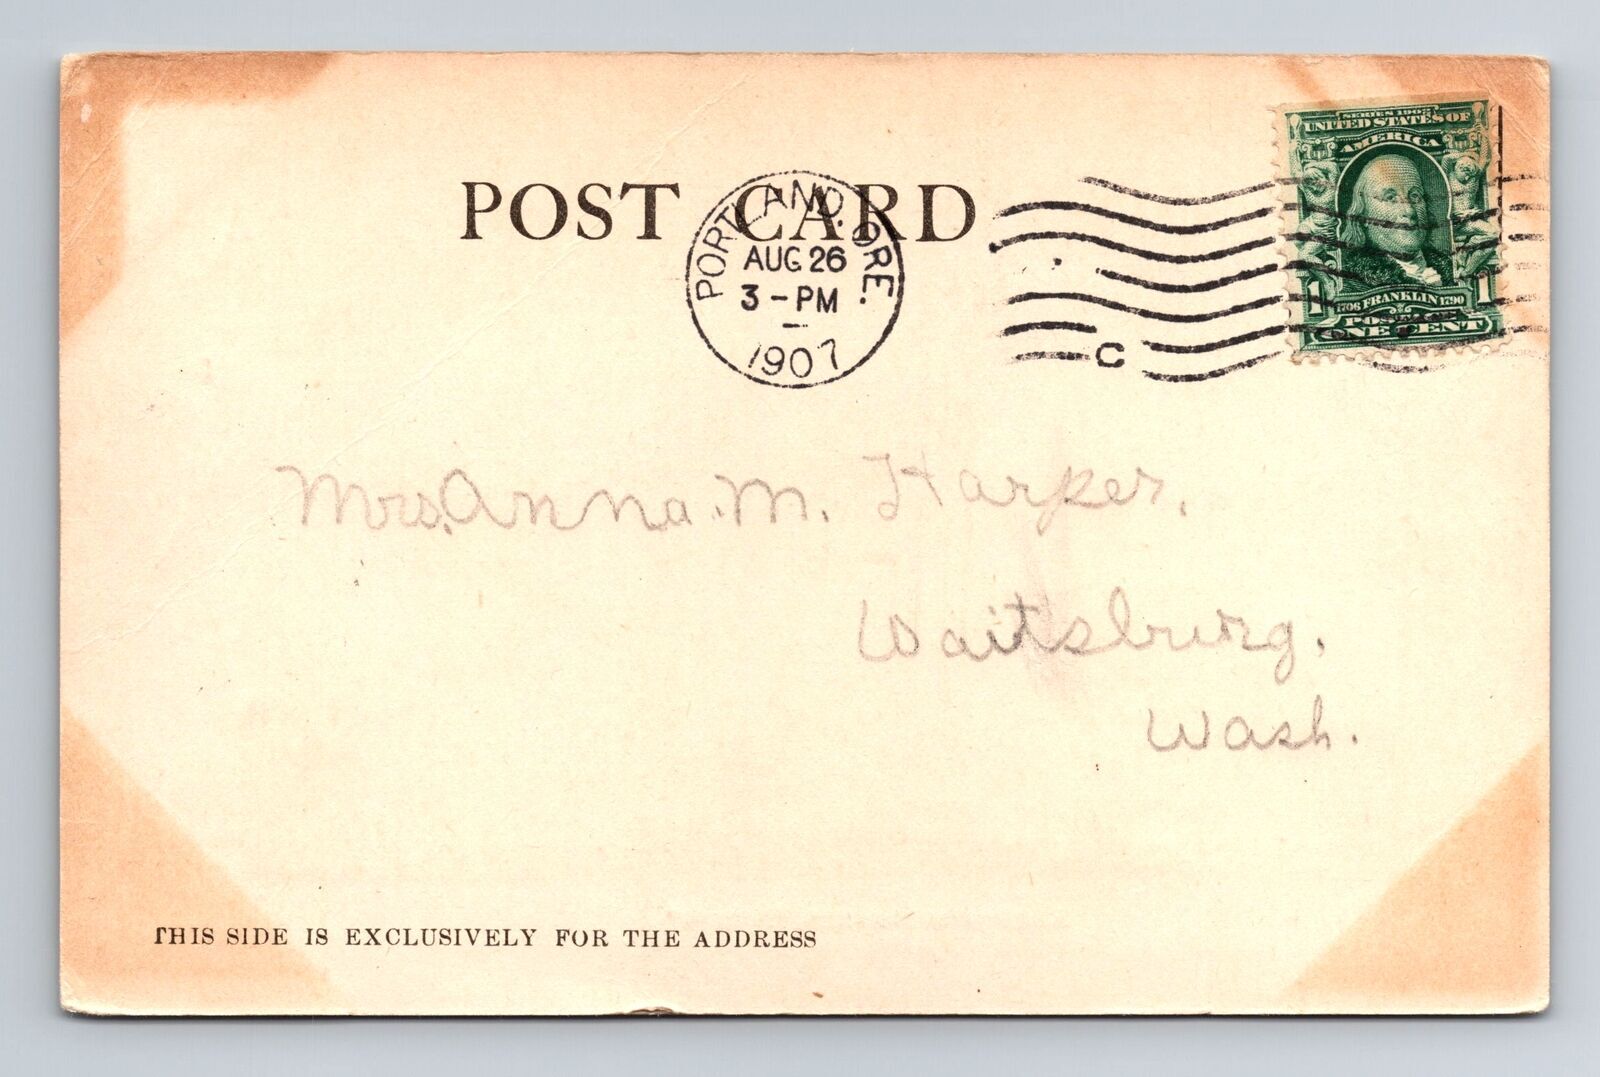 POST CARD
PORTLAND, ORE.
AUG 26
3-PM
1907
C
SERIES 1902
UNITED STATES OF
AMERICA
1 1
1706 FRANKLIN 1790
POSTAGE
ONE CENT
Mrs. Anna. M. Harper.
Waitsburg.
Wash.
THIS SIDE IS EXCLUSIVELY FOR THE ADDRESS